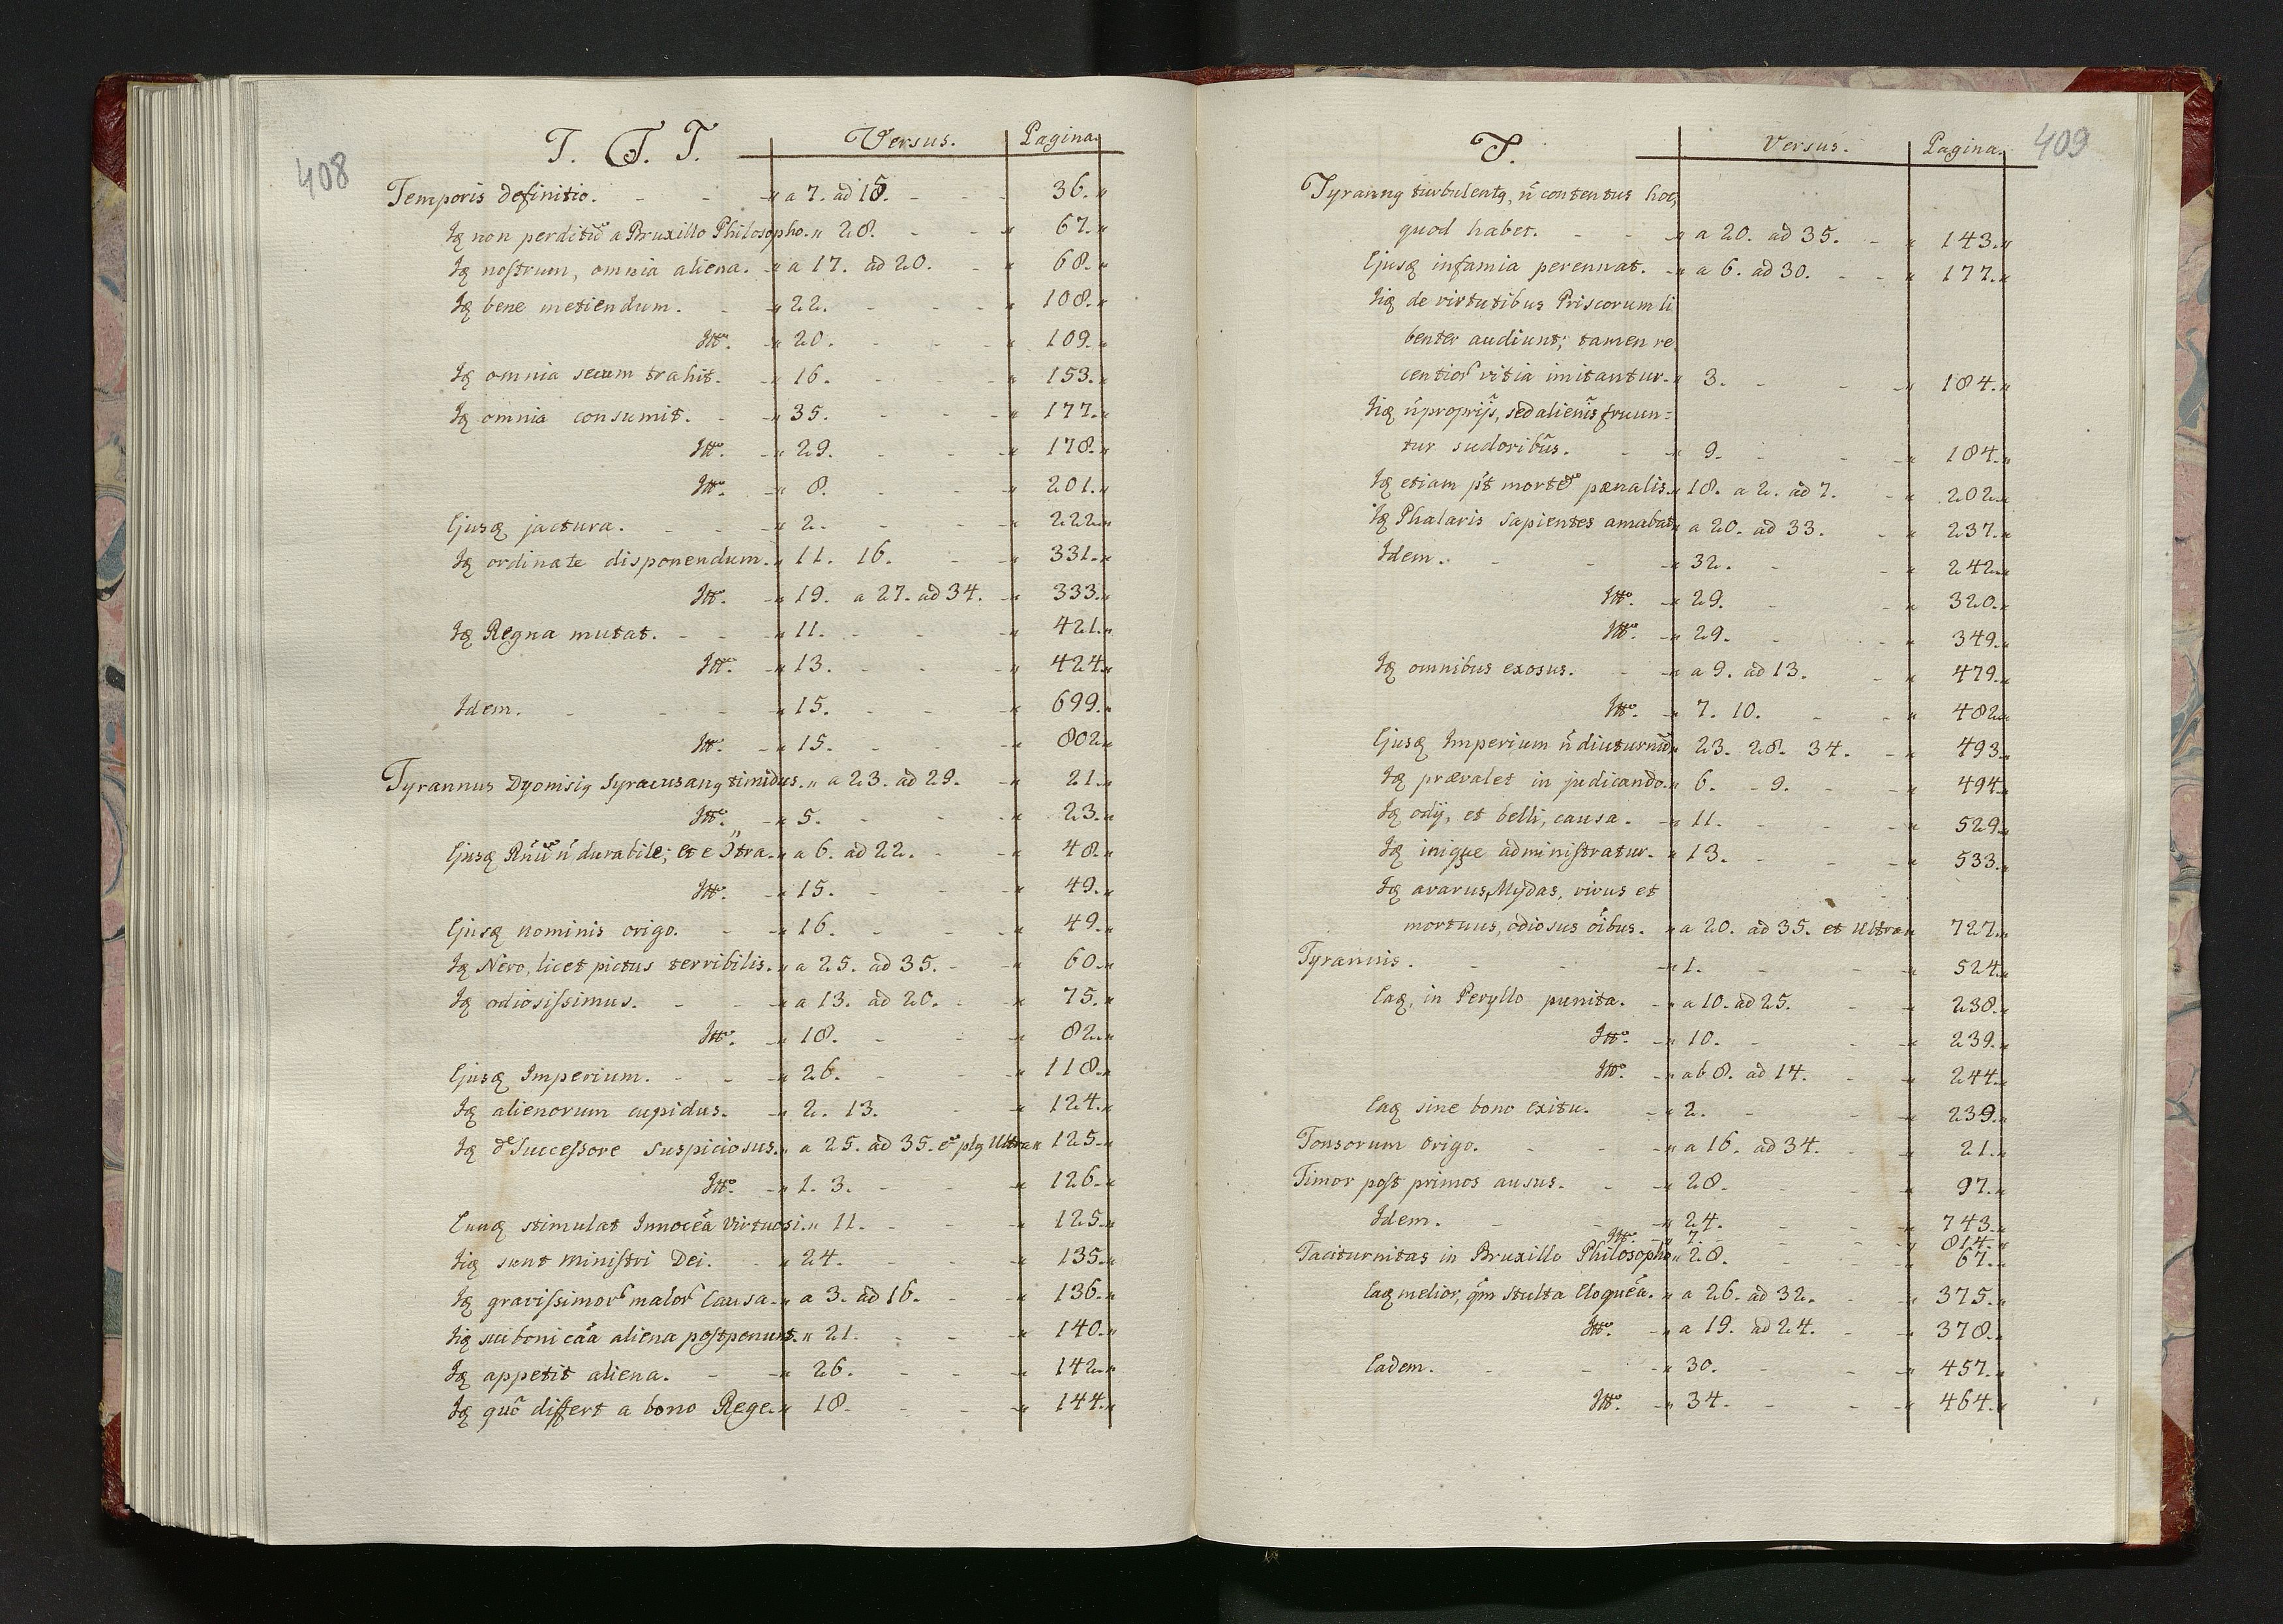 408
T. T. T. Versus. Pagina.
Temporis definitio. a 7. ad 15. 36.
Iq non perditio a Bruxillo Philosopho. 28. 67.
Iq nostrum, omnia aliena. a 17. ad 20. 68.
Iq bene metiendum. 22. 108.
Itto. 20. 109.
Iq omnia secum trahit. 16. 153.
Iq omnia consumit. 35. 177.
Itto. 29. 178.
Itto. 8. 201.
Ejusq jactura. 2. 222.
Iq ordinate disponendum. 11. 16. 331.
Itto. 19. a 27. ad 34. 333.
Iq Regna mutat. 11. 421.
Itto. 13. 424.
Idem. 15. 699.
Itto. 15. 802.
Tyrannus Dyonisiq Syracusanq timidus. a 23. ad 29. 21.
Itto. 5. 23.
Ejusq Rñũ ñ durabile; et e tra. a 6. ad 22. 48.
Itto. 15. 49.
Ejusq nominis origo. 16. 49.
Iq Nero, licet pictus terribilis. a 25. ad 35. 60.
Iq odiosissimus. a 13. ad 20. 75.
Itto. 18. 82.
Ejusq Imperium. 26. 118.
Iq alienorum cupidus. 2. 13. 124.
Iq de Successore suspiciosus. a 25. ad 35. et plq ultra 125.
Itto. 1. 3. 126.
Eunq stimulat Innocẽa Virtuosi. 11. 125.
Iiq sunt Ministri Dei. 24. 135.
Iq gravissimor malor Causa. a 3. ad 16. 136.
Iiq sui boni cãa aliena postponunt. 21. 140.
Iq appetit aliena. 26. 142.
Iq quõ differt a bono Rege. 18. 144.
409
T. Versus. Pagina.
Tyrannq turbulentq, ñ contentus hoc,
quod habet. a 20. ad 35. 143.
Ejusq infamia perennat. a 6. ad 30. 177.
Iiq de virtutibus Priscorum li
benter audiunt; tamen re
centior vitia imitantur. 3. 184.
Iiq ñ proprijs, sed alienis fruun=
tur sudoribus. 9. 184.
Iq etiam pt morte pænalis. 18. a 2. ad 7. 202.
Iq Phalaris sapientes amabat. a 20. ad 33. 237.
Idem. 32. 242.
Itto. 29. 320.
Itto. 29. 349.
Iq omnibus exosus. a 9. ad 13. 479.
Itto. 7. 10. 482.
Ejusq Imperium ñ diuturnũ. 23. 28. 34. 493.
Iq prævalet in judicando. 6. 9. 494.
Iq odij, et belli, causa. 11. 529.
Iq inique administratur. 13. 533.
Iq avarus, Mydas, vivus et
mortuus, odiosus õibus. a 20. ad 35. et ultra 727.
Tyrannis. 1. 524.
Eaq, in Peryllo punita. a 10. ad 25. 238.
Itto. 10. 239.
Itto. ab 8. ad 14. 244.
Eaq sine bono exitu. 2. 239.
Tonsorum Origo. a 16. ad 34. 21.
Timor post primos ausus. 28. 97.
Idem. 24. 743.
Itto. 7. 814.
Taciturnitas in Bruxillo Philosopho 28. 67.
Eaq melior, qm stulta Eloquẽa. a 26. ad 32. 375.
Itto. a 19. ad 24. 378.
Eadem. 30. 457.
Itto. 34. 464.